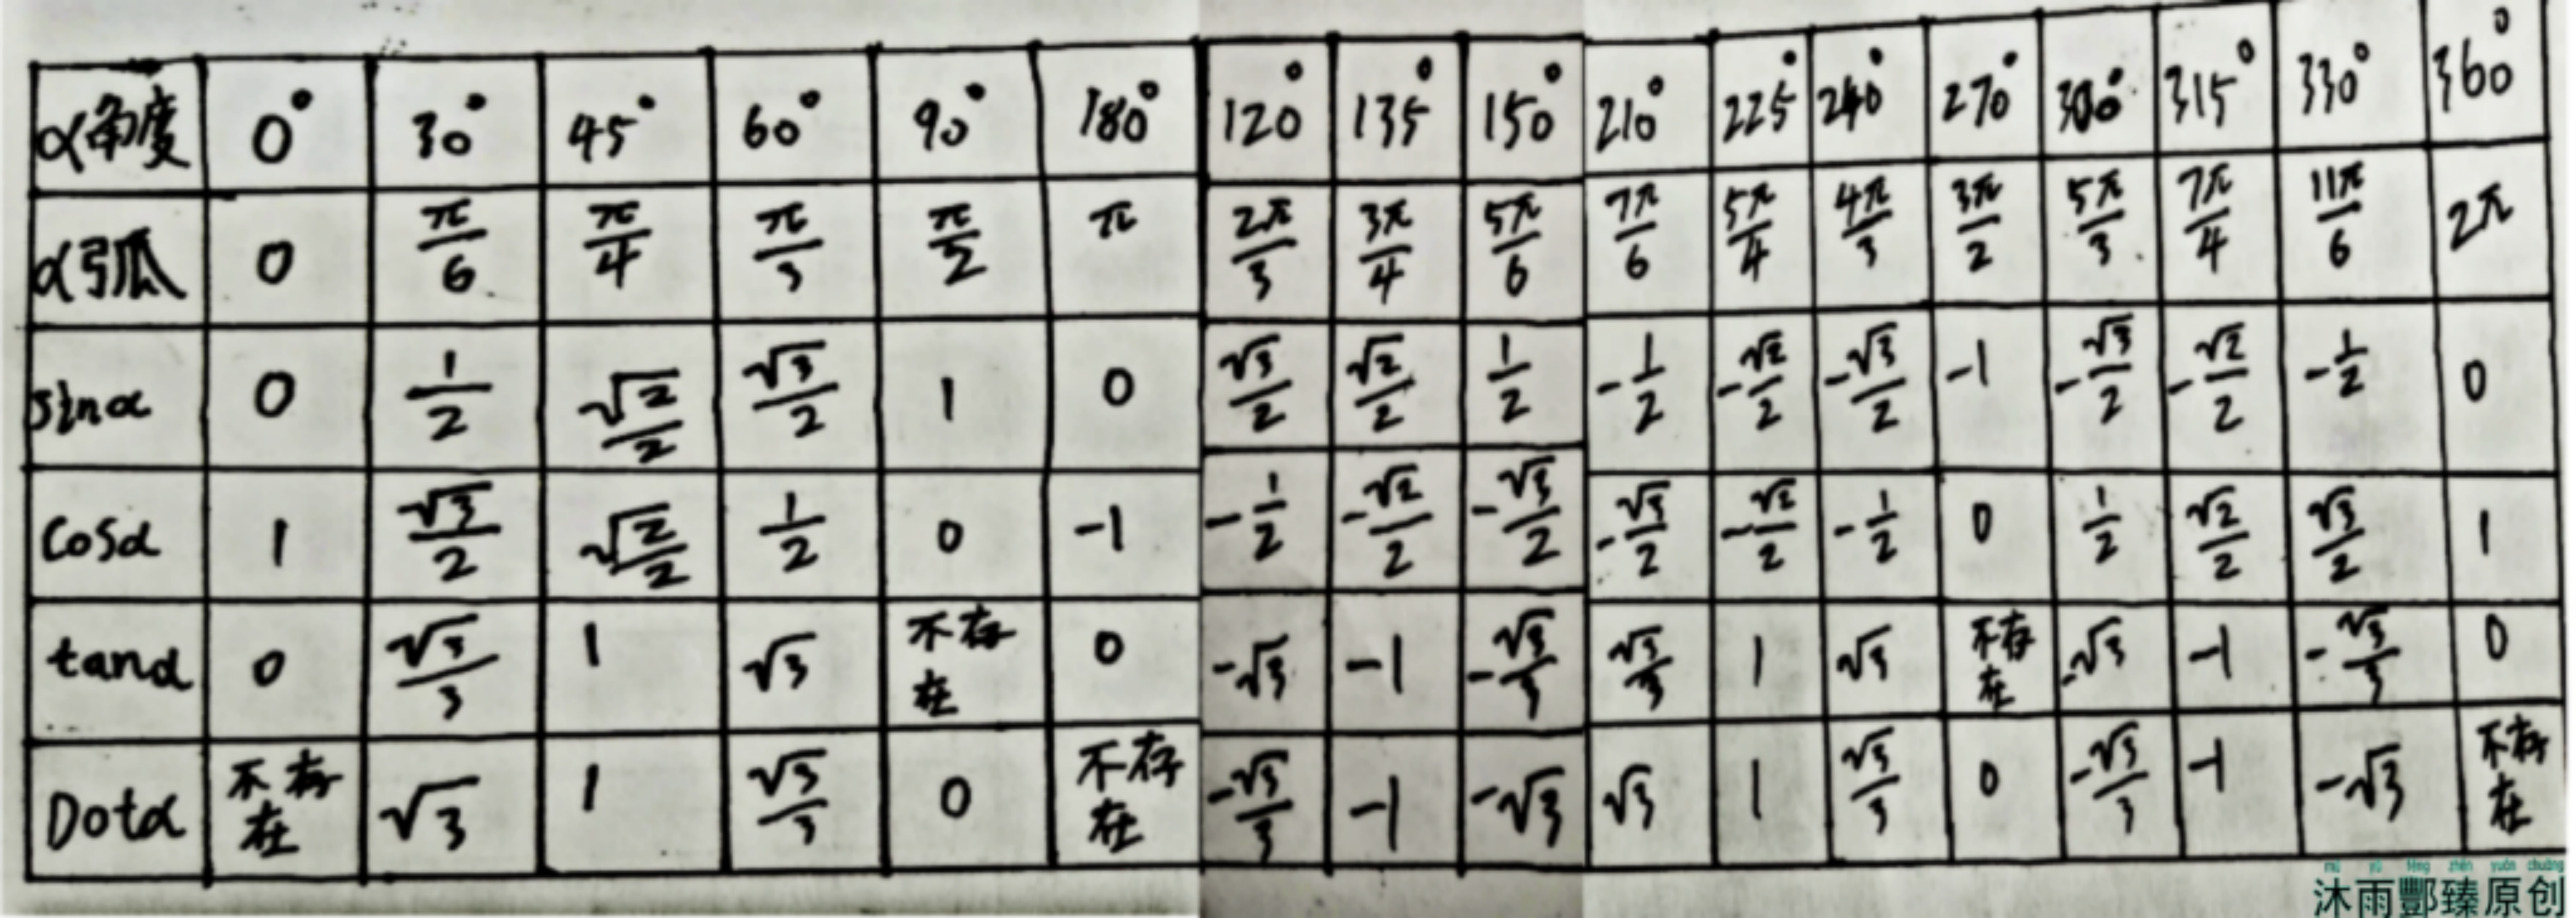 α角度 0° 30° 45° 60° 90° 180° 120° 135° 150° 210° 225° 240° 270° 300° 315° 330° 360°
α弧 0 π/6 π/4 π/3 π/2 π 2π/3 3π/4 5π/6 7π/6 5π/4 4π/3 3π/2 5π/3 7π/4 11π/6 2π
sinα 0 1/2 √2/2 √3/2 1 0 √3/2 √2/2 1/2 -1/2 -√2/2 -√3/2 -1 -√3/2 -√2/2 -1/2 0
cosα 1 √3/2 √2/2 1/2 0 -1 -1/2 -√2/2 -√3/2 -√3/2 -√2/2 -1/2 0 1/2 √2/2 √3/2 1
tanα 0 √3/3 1 √3 不存在 0 -√3 -1 -√3/3 √3/3 1 √3 不存在 -√3 -1 -√3/3 0
Dotα 不存在 √3 1 √3/3 0 不存在 -√3/3 -1 -√3 √3 1 √3/3 0 -√3/3 -1 -√3 不存在
mù yǔ fēng zhēn yuán chuàng
沐雨酆臻原创